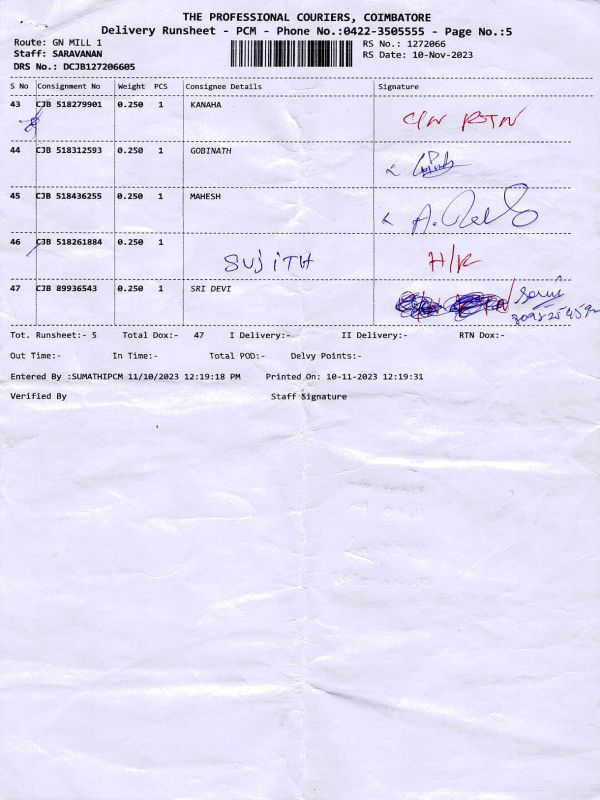 THE PROFESSIONAL COURIERS, COIMBATORE
Delivery Runsheet - PCM - Phone No.:0422-3505555 - Page No.:5
Route: GN MILL 1 RS No.: 1272066
Staff: SARAVANAN RS Date: 10-Nov-2023
DRS No.: DCJB127206605
S No Consignment No Weight PCS Consignee Details Signature
43 CJB 518279901 0.250 1 KANAHA
C/N RTN
44 CJB 518312593 0.250 1 GOBINATH
45 CJB 518436255 0.250 1 MAHESH
46 CJB 518261884 0.250 1
SUJITH H/K
47 CJB 89936543 0.250 1 SRI DEVI
Tot. Runsheet:- 5 Total Dox:- 47 I Delivery:- II Delivery:- RTN Dox:-
Out Time:- In Time:- Total POD:- Delvy Points:-
Entered By :SUMATHIPCM 11/10/2023 12:19:18 PM Printed On: 10-11-2023 12:19:31
Verified By Staff Signature